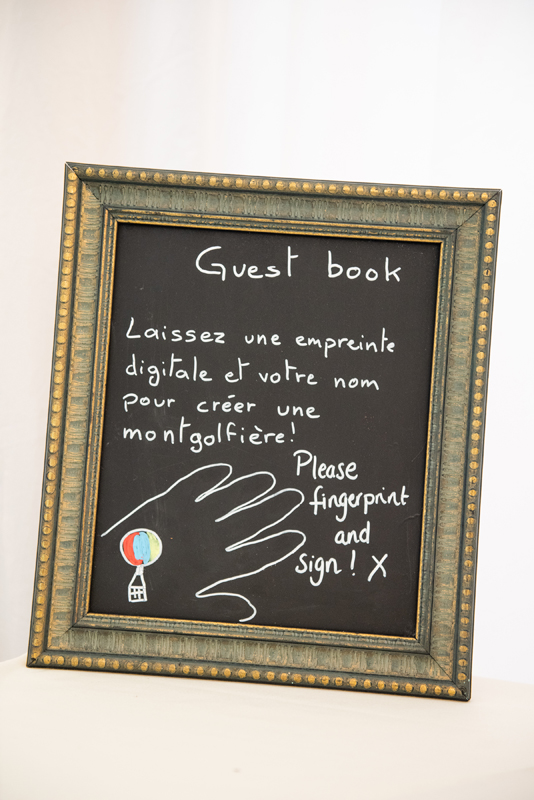 Guest book
Laissez une empreinte
digitale et votre nom
pour créer une
montgolfière!
Please
fingerprint
and
sign! X